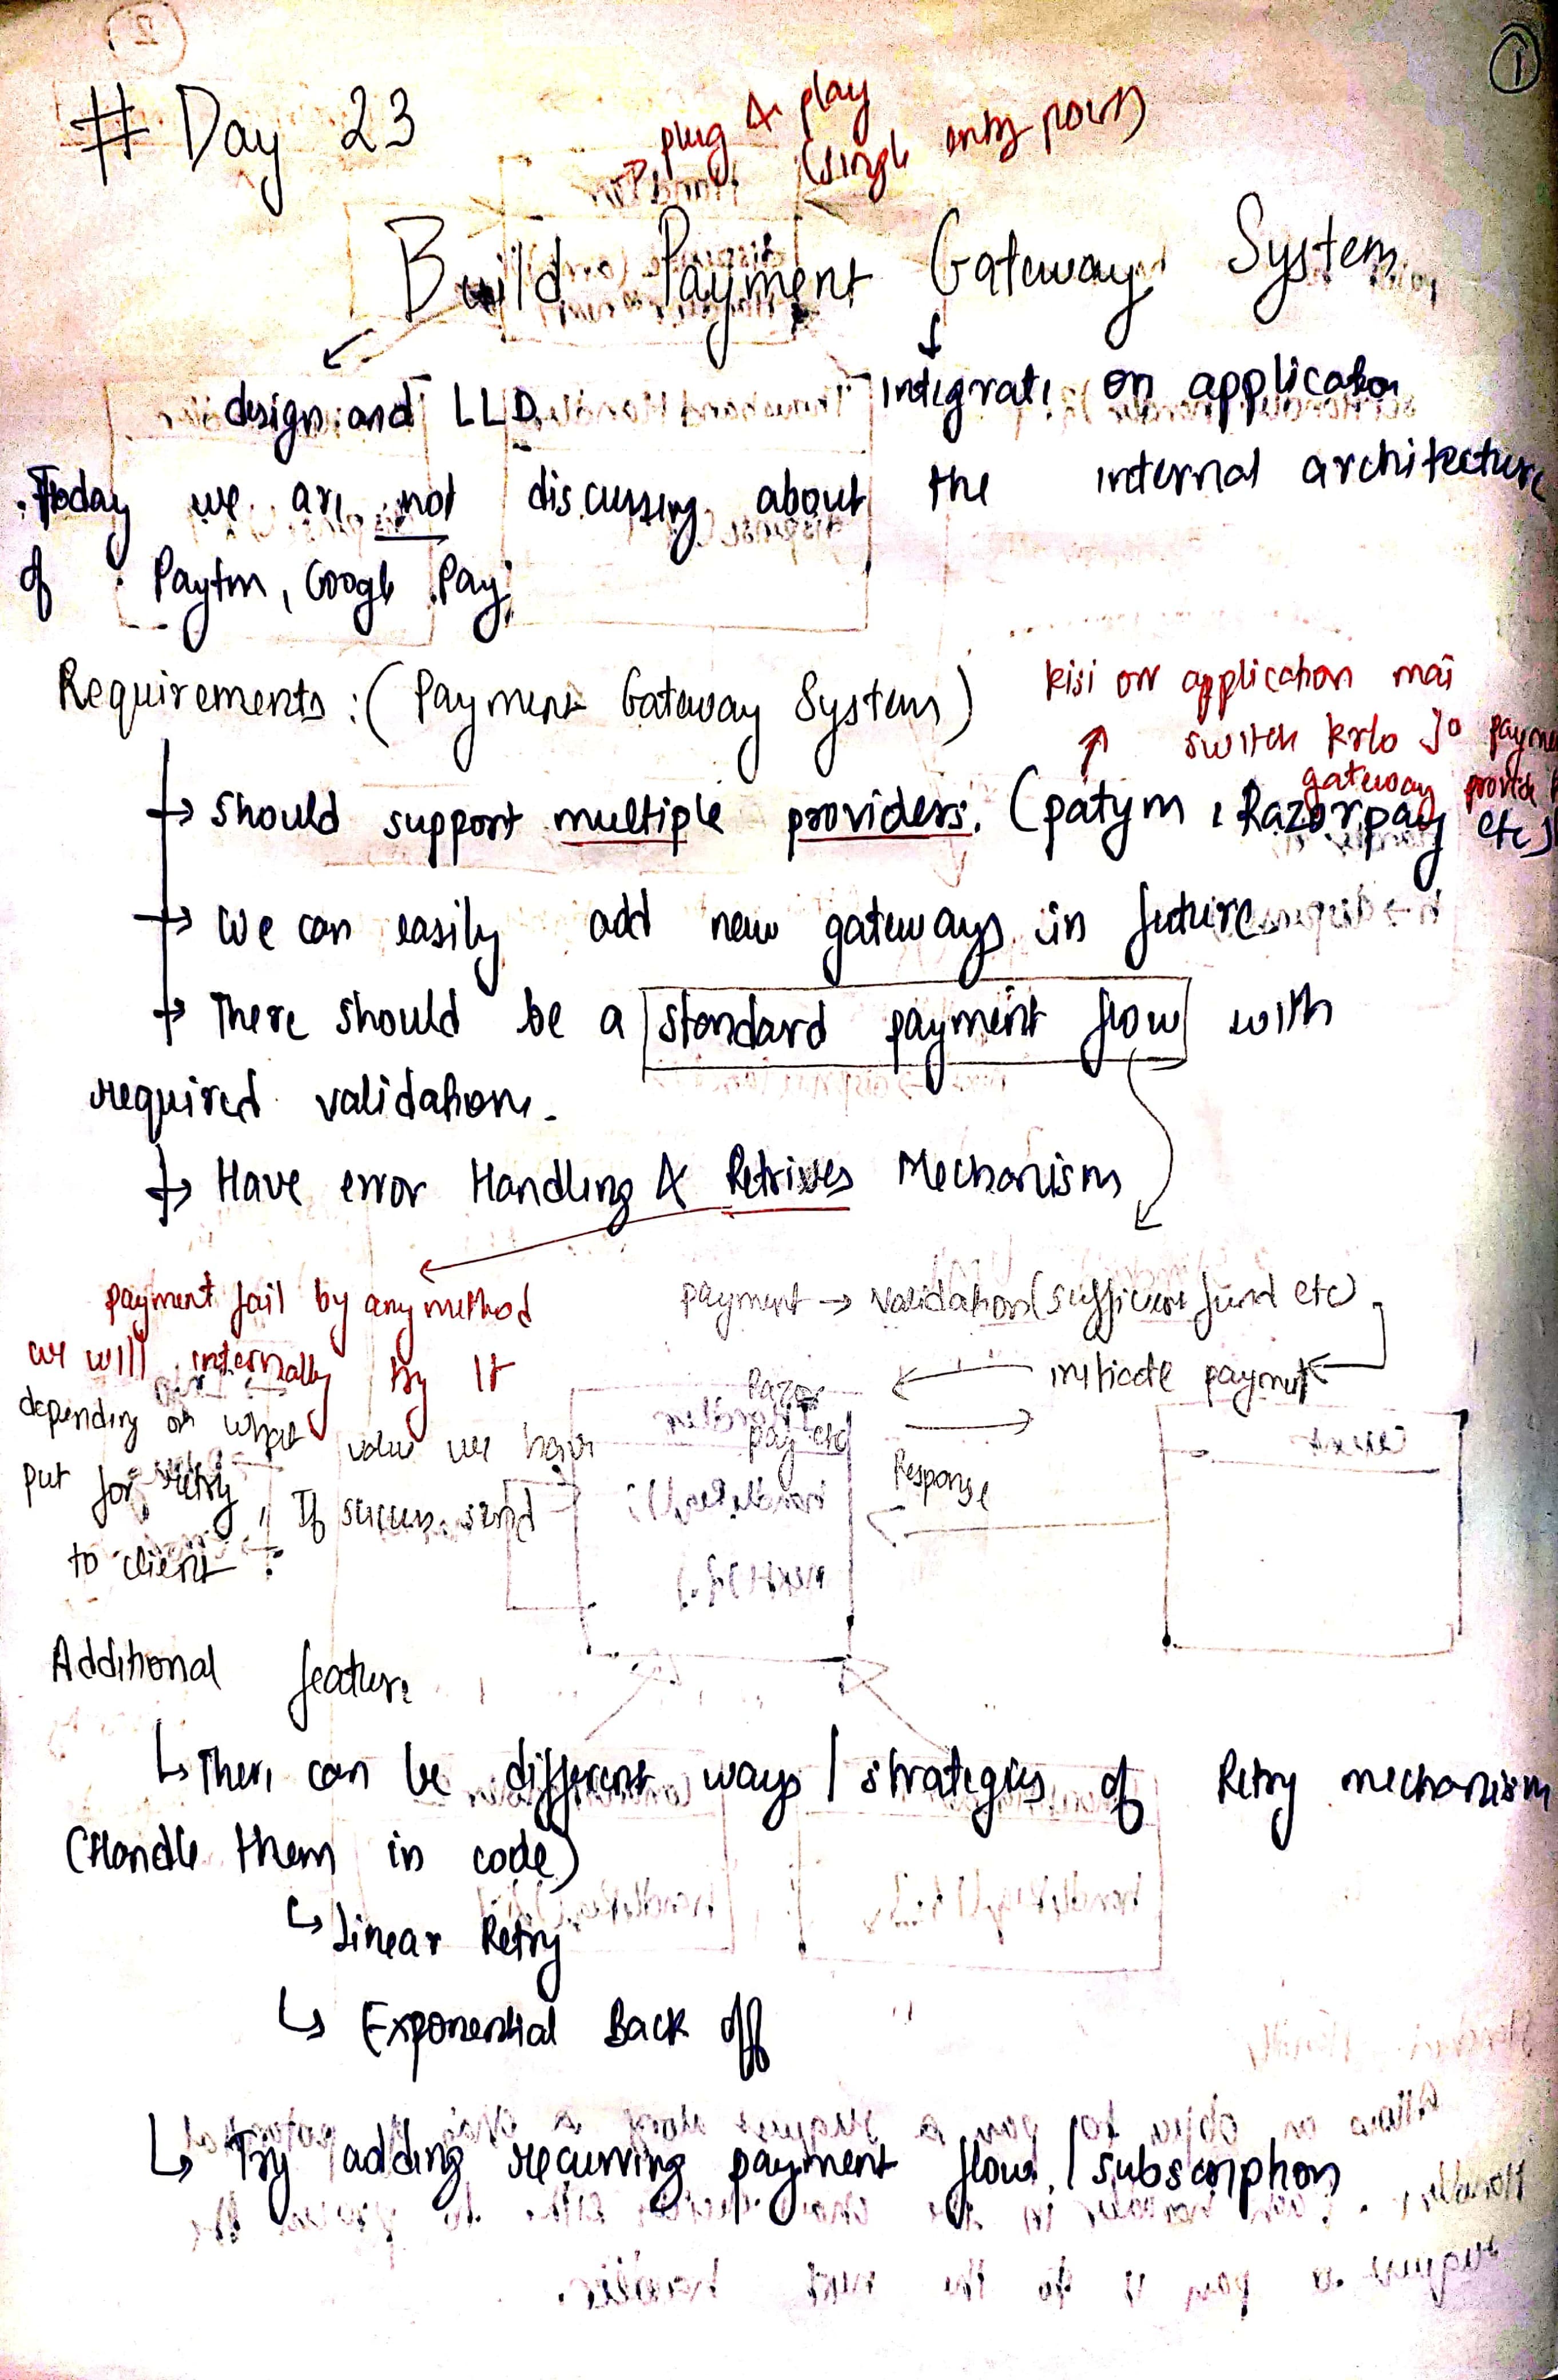 ①
# Day 23
plug & play
(single entry point)
Build Payment Gateway System
design and LLD
integrate on application
Today we are not discussing about the internal architecture
of Paytm, Google Pay
Requirements : ( Payment Gateway System )
kisi or application mai
switch krlo jo payme
gateway provide
→ should support multiple providers. (patym , Razorpay etc)
→ We can easily add new gateways in future
→ There should be a standard payment flow with
required validations.
→ Have error Handling & Retrives Mechanism
payment fail by any method
we will internally try it
depending on what value we have
put for retry , If success send
to client .
payment → validation (sufficient fund etc)
initiate payment
Razor
pay etc
Response
Additional feature
↳ There can be different ways / strategies of Retry mechanism
(Handle them in code)
↳ Linear Retry
↳ Exponential Back off
↳ Try adding recurring payment flow / subscription